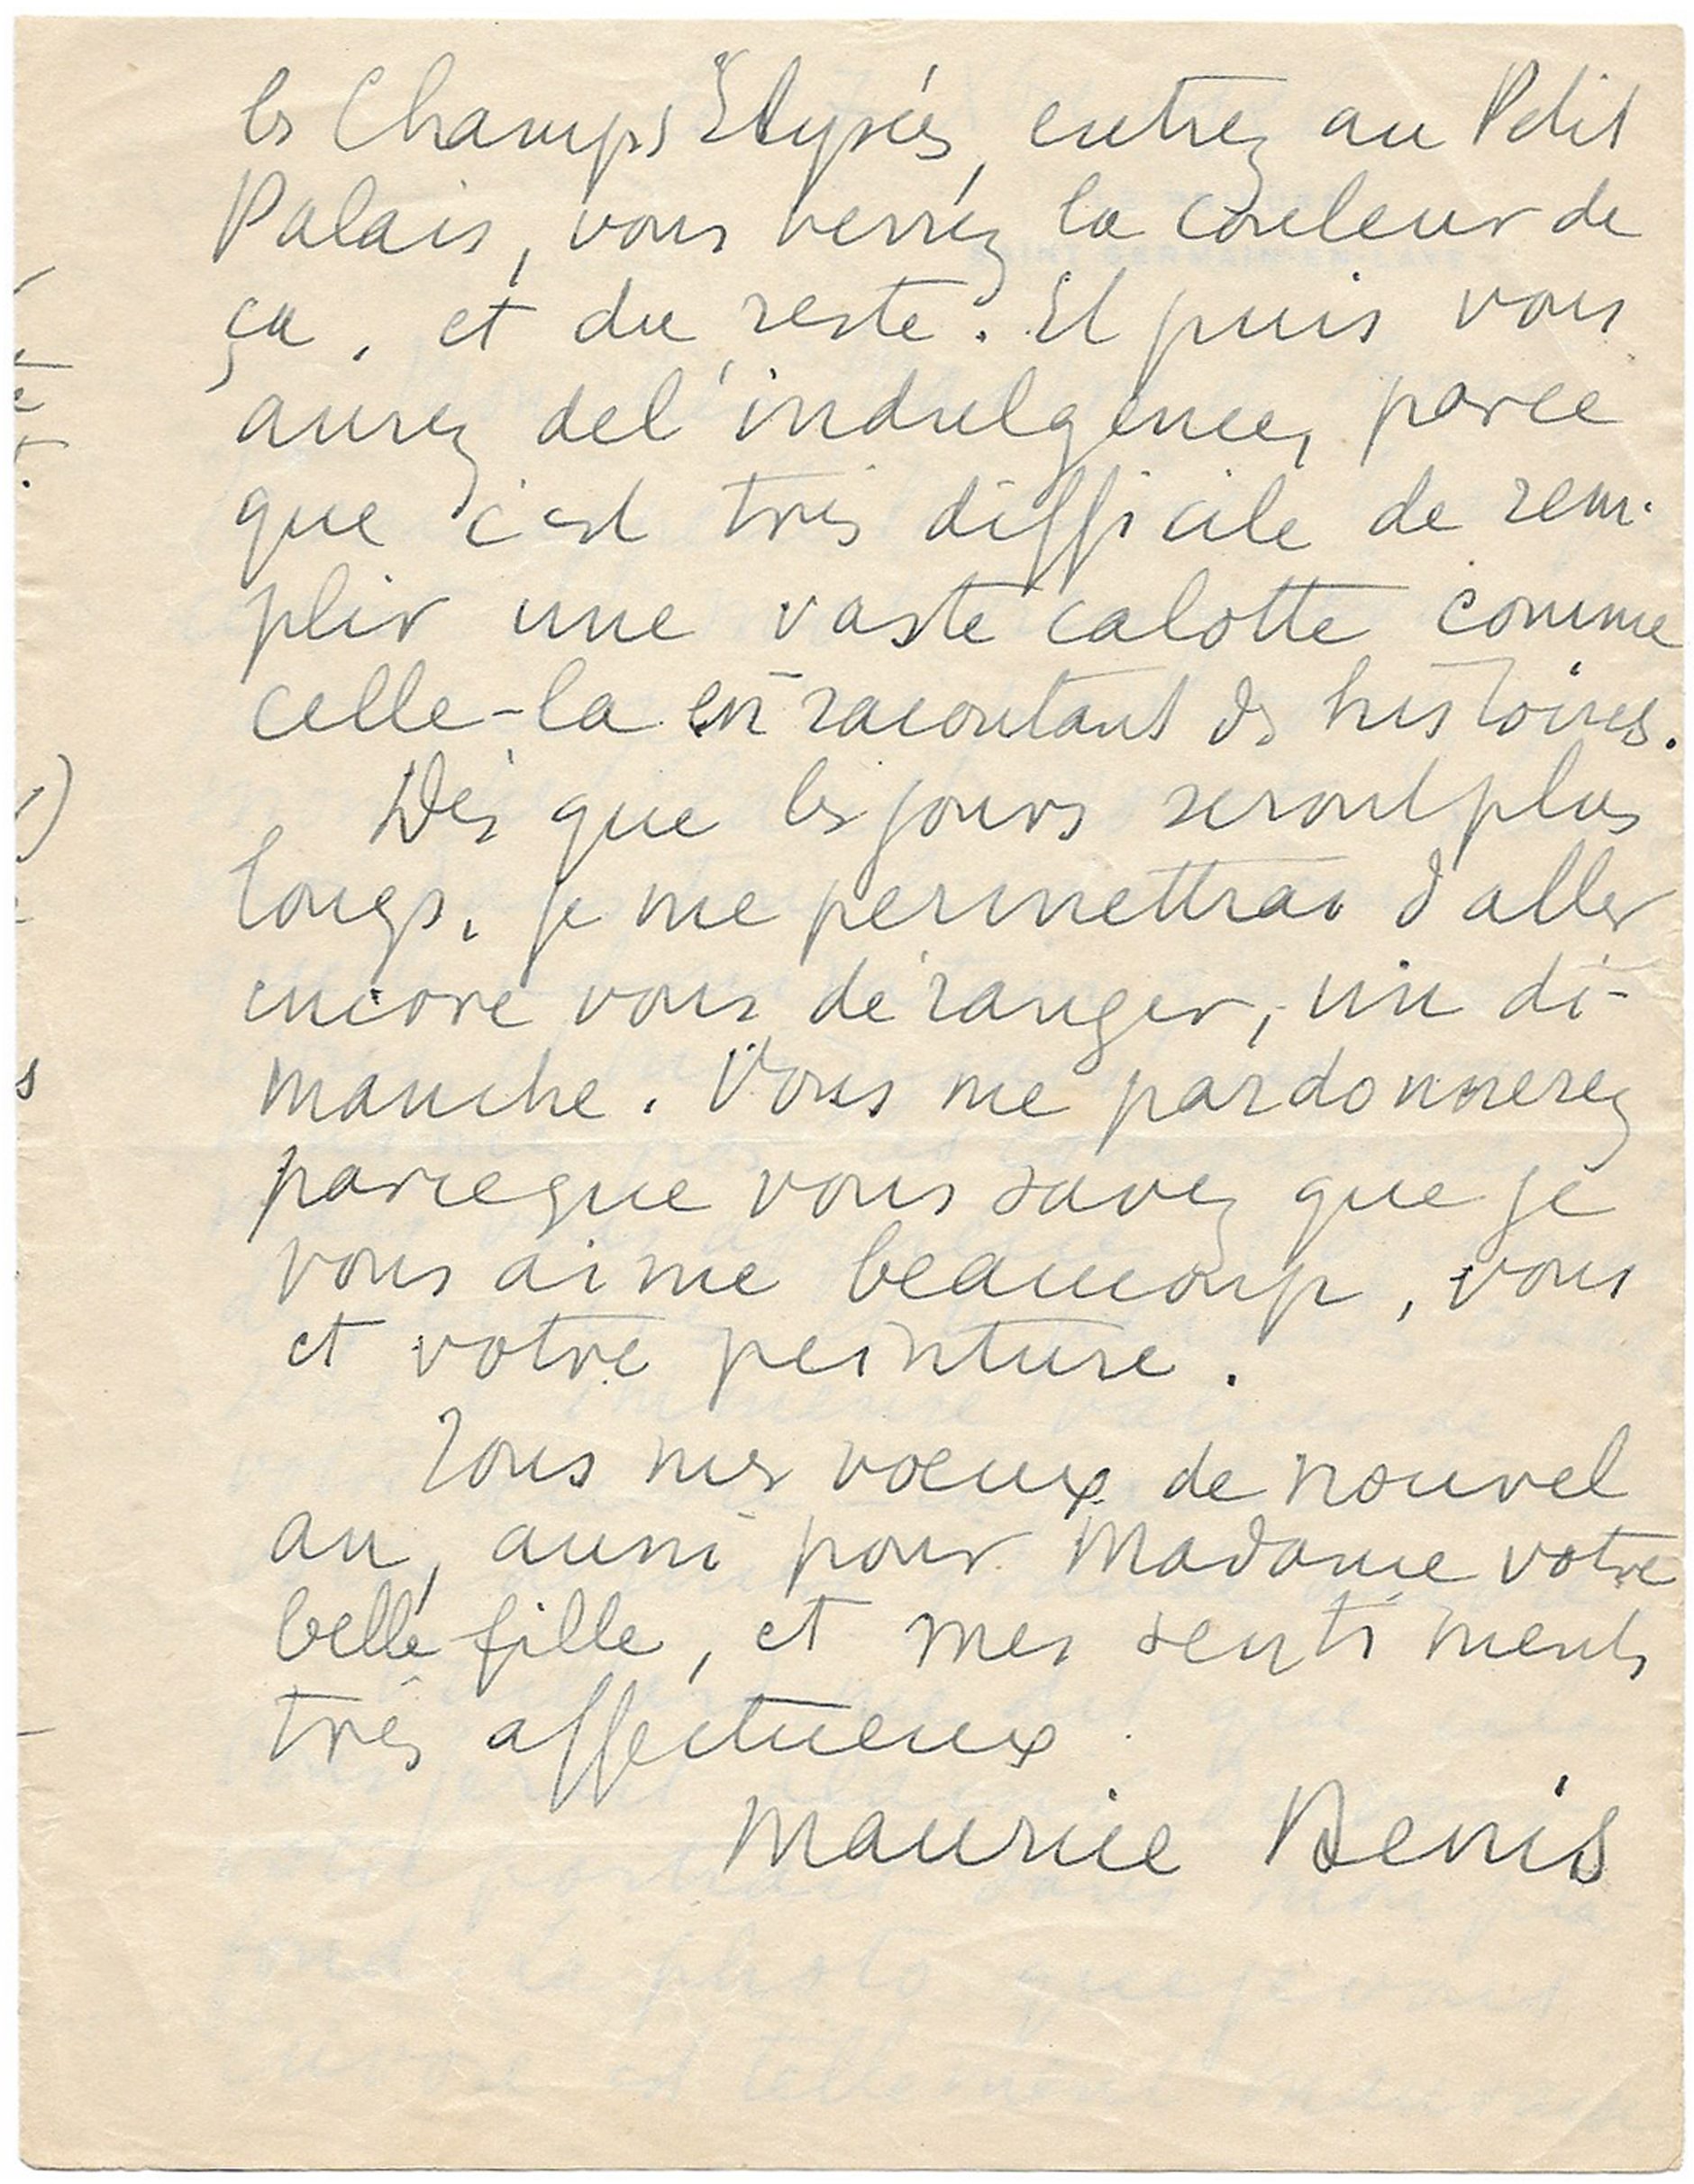 les Champs Elysées, entrez au Petit
Palais, vous verrez la couleur de
ça, et du reste. Et puis vous
aurez de l'indulgence, parce
que c'est très difficile de rem-
plir une vaste calotte comme
celle-la en racontant des histoires.
Dès que les jours seront plus
longs, je me permettrai d'aller
encore vous déranger, un di-
manche. Vous me pardonnerez
parceque vous savez que je
vous aime beaucoup, vous
et votre peinture.
Tous mes vœux de nouvel
an, aussi pour Madame votre
belle fille, et mes sentiments
très affectueux.
Maurice Denis